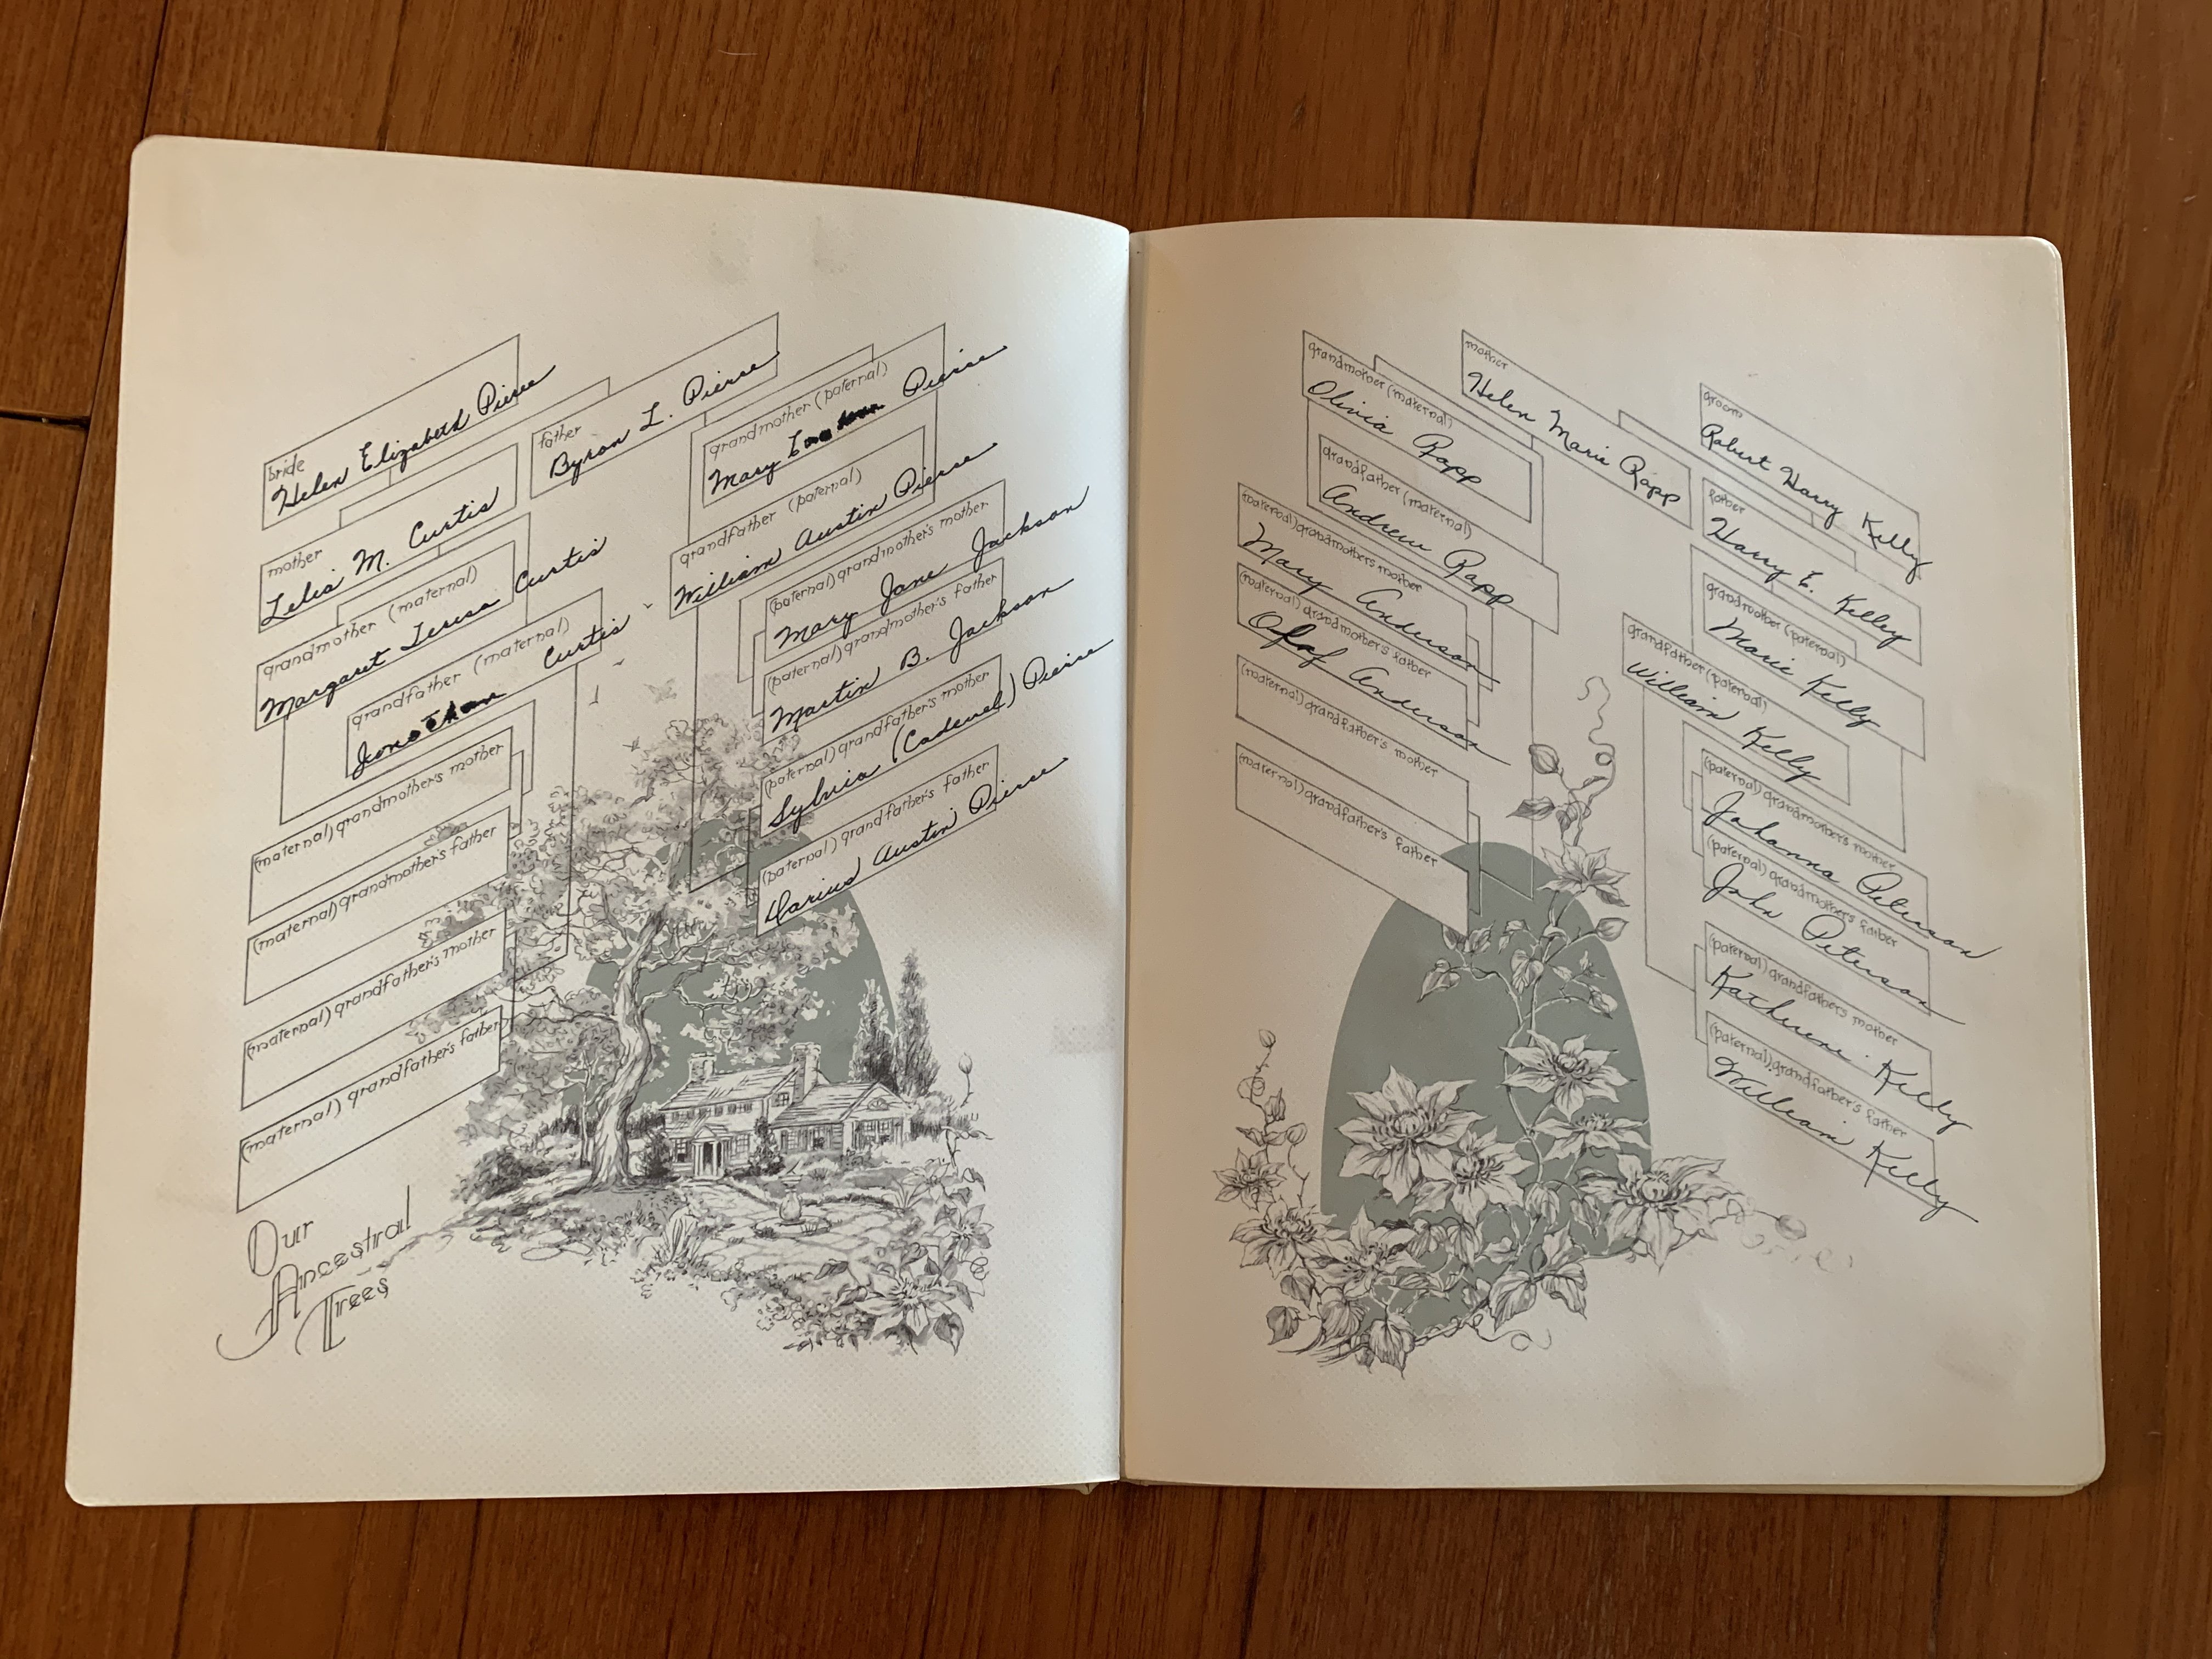 bride
Helen Elizabeth Pierce
mother
Lelia M. Curtis
father
Byron L. Pierce
grandmother (maternal)
Margaret Teresa Curtis
grandfather (maternal)
Curtis
grandmother (paternal)
Mary Pierce
grandfather (paternal)
William Austin Pierce
(maternal) grandmother's mother
(maternal) grandmother's father
(maternal) grandfather's mother
(maternal) grandfather's father
(paternal) grandmother's mother
Mary Jane Jackson
(paternal) grandmother's father
Martin B. Jackson
(paternal) grandfather's mother
Sylvia (Cadwel) Pierce
(paternal) grandfather's father
Darius Austin Pierce
Our
Ancestral
Trees
groom
Robert Harry Kelly
mother
Helen Marie Rapp
father
Harry E. Kelley
grandmother (maternal)
Olivia Rapp
grandfather (maternal)
Andrew Rapp
grandmother (paternal)
Marie Kelly
grandfather (paternal)
William Kelly
(maternal) grandmother's mother
Mary Anderson
(maternal) grandmother's father
Olaf Anderson
(maternal) grandfather's mother
(maternal) grandfather's father
(paternal) grandmother's mother
Johanna Peterson
(paternal) grandmother's father
John Peterson
(paternal) grandfather's mother
Katherine Kelly
(paternal) grandfather's father
William Kelly